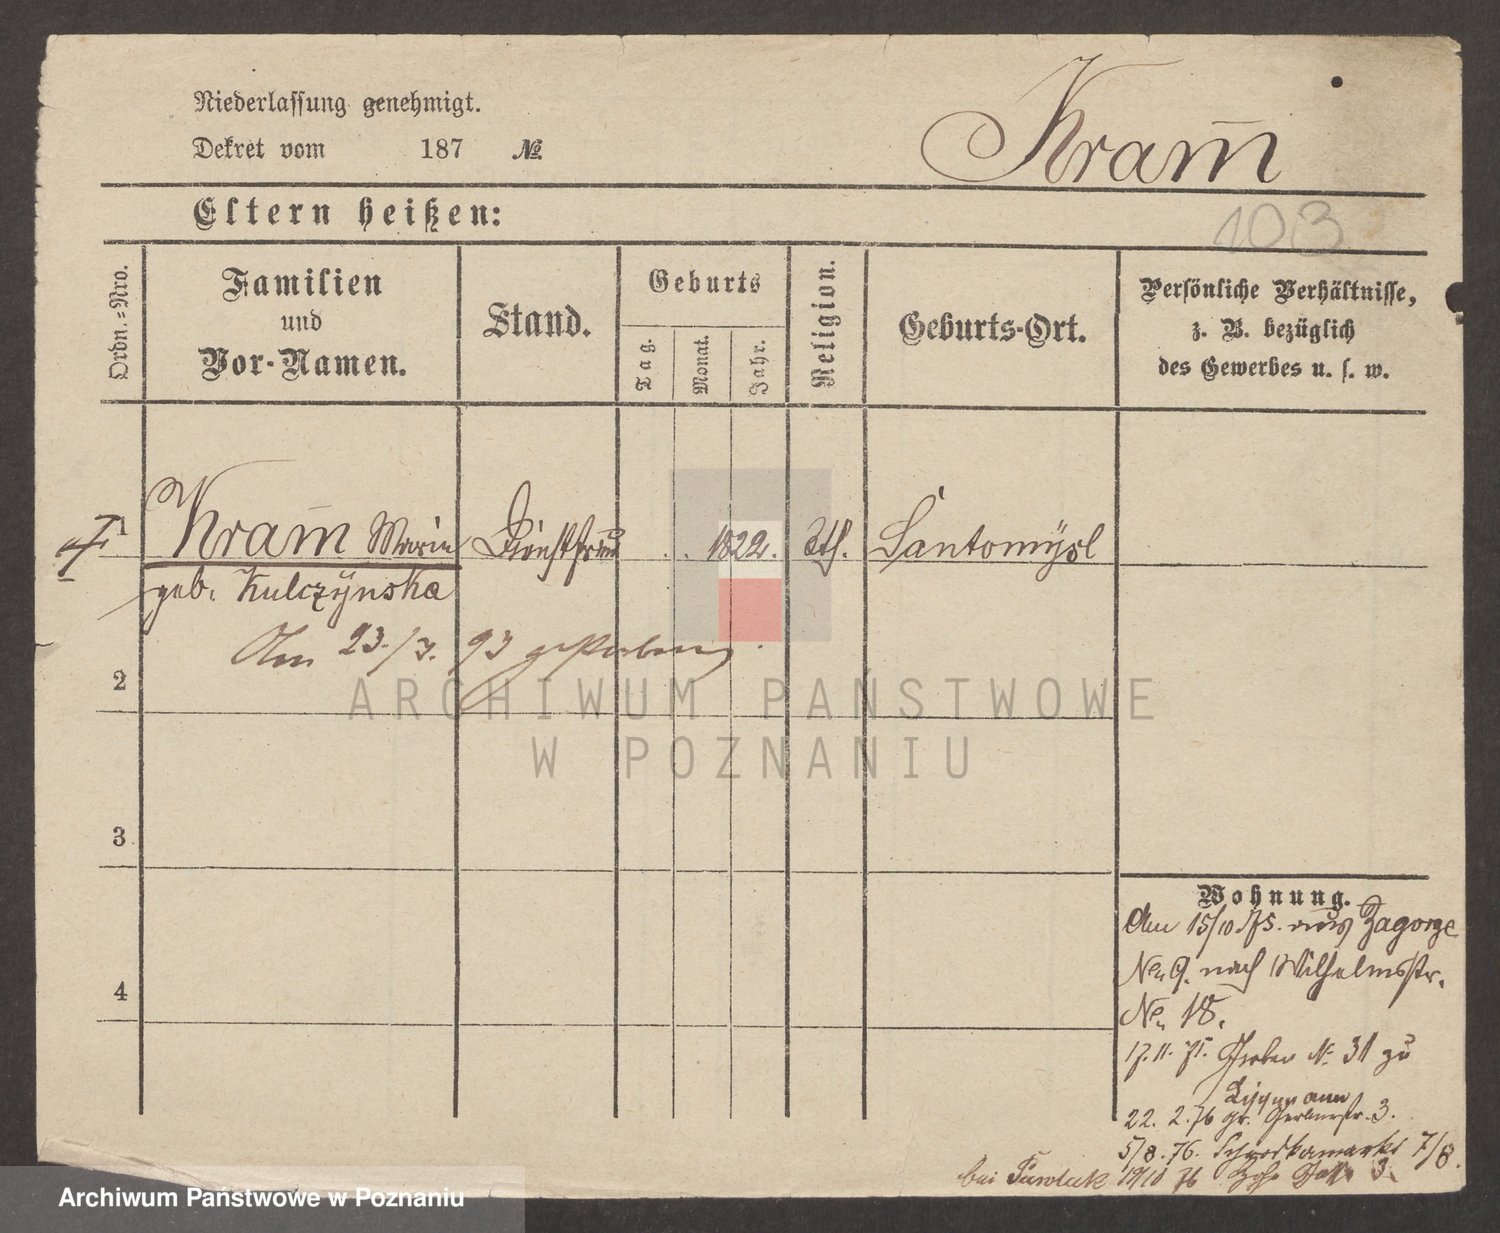 Niederlassung genehmigt.
Dekret vom 187 №
Kram̄
Eltern heißen:
103
Ordn.=Nro.
Familien
und
Vor-Namen.
Stand.
Geburts
Tag.
Monat.
Jahr.
Religion.
Geburts-Ort.
Persönliche Verhältnisse,
z. B. bezüglich
des Gewerbes u. s. w.
1 Kram̄ Marie Dienstfrau . . 1822. kth. Santomysl
geb. Kulczynska
Am 23./3. 93 gestorben
2
3
4
Wohnung.
Am 15/10 75. aus Zagorze
No. 9. nach Wilhelmsstr.
No. 18.
17.11. 75. Graben No. 31 zu
22. 2. 76 gr. Gerberstr. 3.
5/8. 76. Schrodkamarkt 7/8.
bei 19/10 76 3.
ARCHIWUM PAŃSTWOWE
W POZNANIU
Archiwum Państwowe w Poznaniu